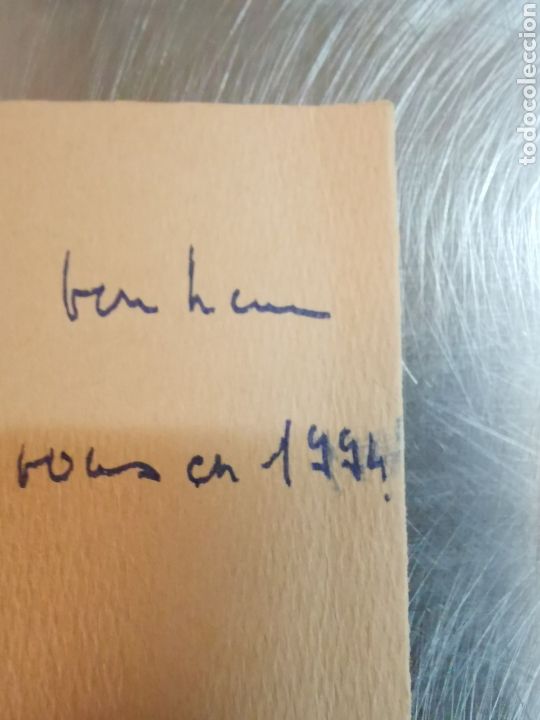 todocoleccion
bonheur
vous en 1994!